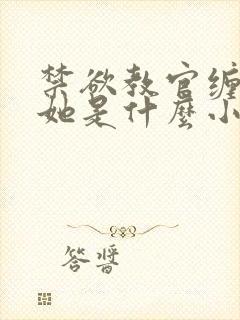 禁欲教官缠
她是什麼小
答醬